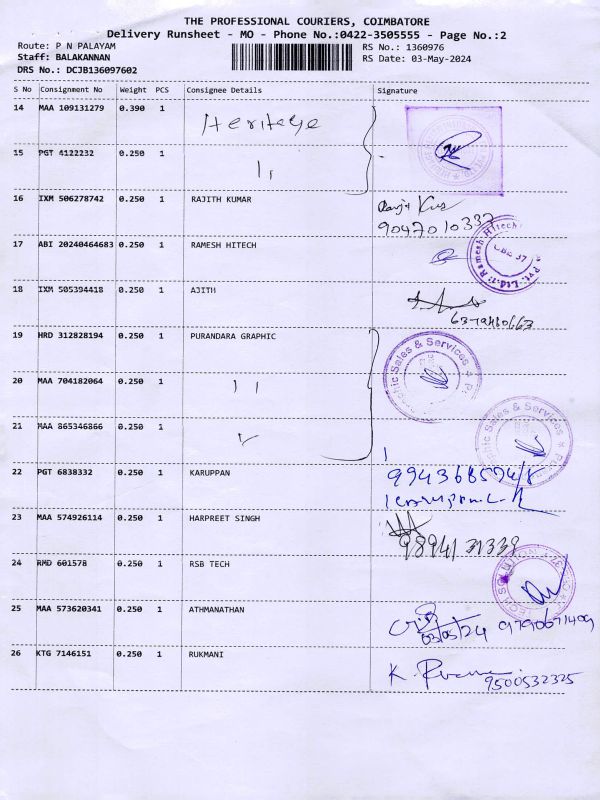 THE PROFESSIONAL COURIERS, COIMBATORE
Delivery Runsheet - MO - Phone No.:0422-3505555 - Page No.:2
Route: P N PALAYAM RS No.: 1360976
Staff: BALAKANNAN RS Date: 03-May-2024
DRS No.: DCJB136097602
S No Consignment No Weight PCS Consignee Details Signature
14 MAA 109131279 0.390 1 Heritage
15 PGT 4122232 0.250 1 11
16 IXM 506278742 0.250 1 RAJITH KUMAR
9047010337
17 ABI 20240464683 0.250 1 RAMESH HITECH
Ramesh Hitech Pvt. Ltd.
CBE-37
18 IXM 505394418 0.250 1 AJITH
19 HRD 312828194 0.250 1 PURANDARA GRAPHIC
Graphic Sales & Services
20 MAA 704182064 0.250 1 11
21 MAA 865346866 0.250 1
Graphic Sales & Services
22 PGT 6838332 0.250 1 KARUPPAN
23 MAA 574926114 0.250 1 HARPREET SINGH
9894131339
24 RMD 601578 0.250 1 RSB TECH
25 MAA 573620341 0.250 1 ATHMANATHAN
03/05/24 9790671409
26 KTG 7146151 0.250 1 RUKMANI
9500532325